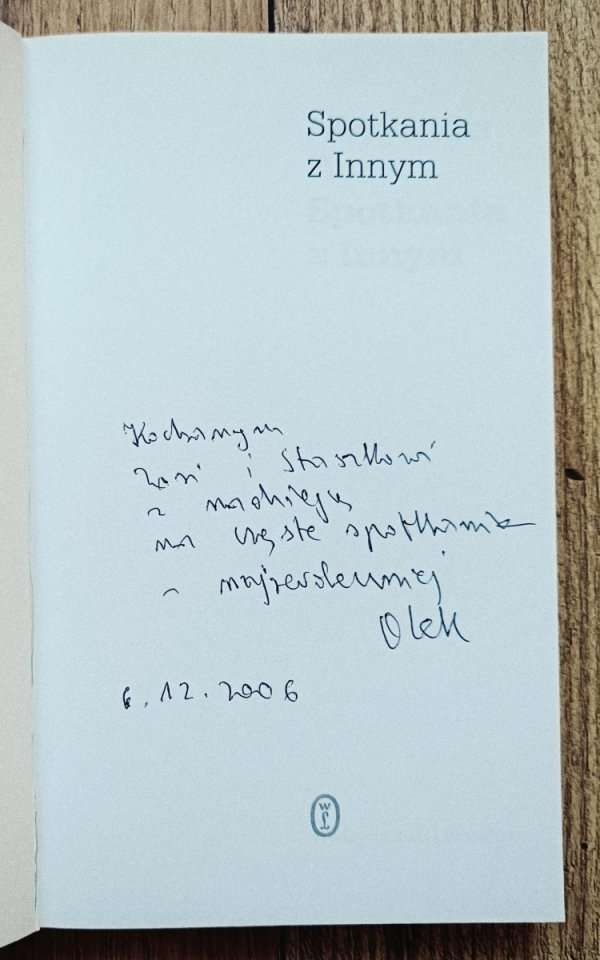 Spotkania
z Innym
Kochanym
Zosi i Staszkowi
z nadzieją
na częste spotkania
najserdeczniej
Olek
6.12.2006
WL